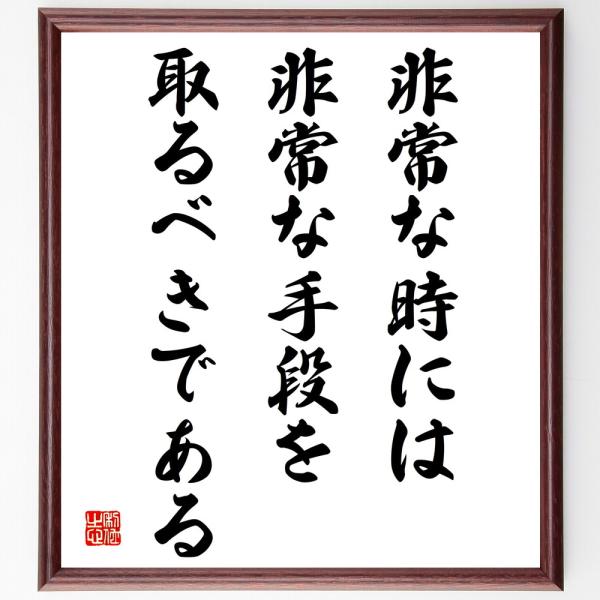 非常な時には
非常な手段を
取るべきである